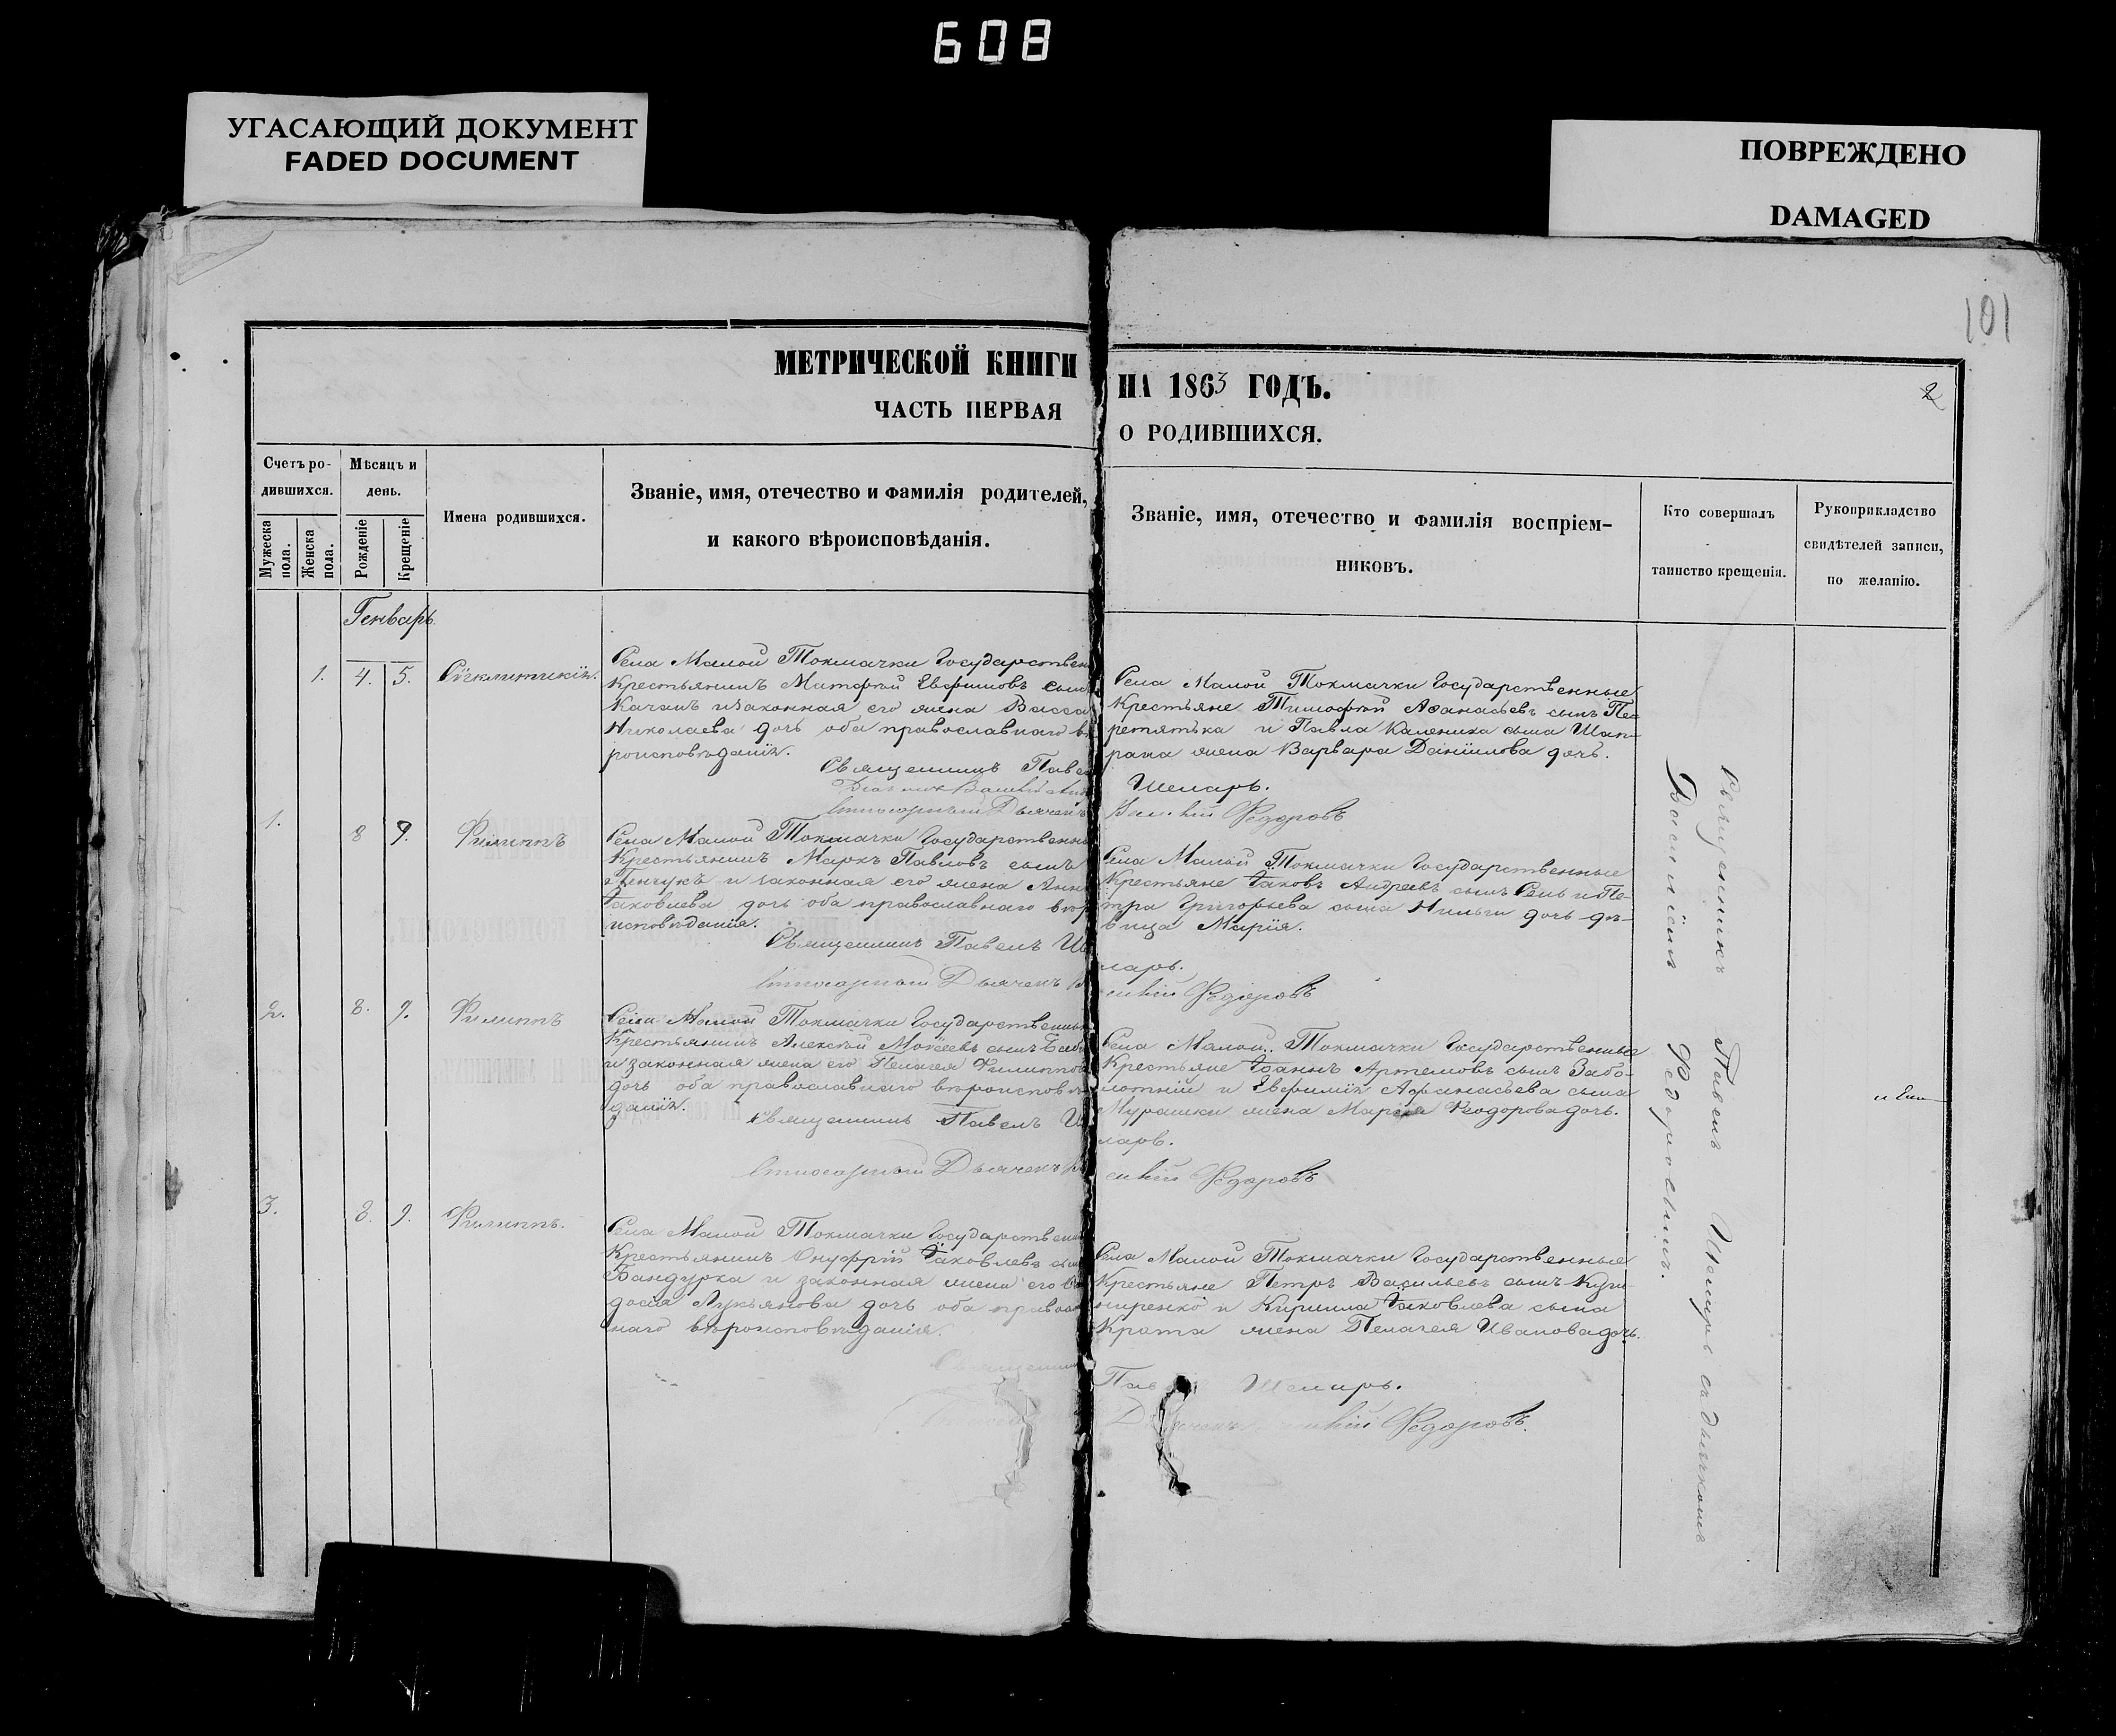 608
УГАСАЮЩИЙ ДОКУМЕНТ
FADED DOCUMENT
ПОВРЕЖДЕНО
DAMAGED
101
2
МЕТРИЧЕСКОЙ КНИГИ
ЧАСТЬ ПЕРВАЯ
НА 1863 ГОДЪ.
О РОДИВШИХСЯ.
Счетъ ро-
дившихся.
Мужеска пола.
Женска пола.
Мѣсяцъ и
день.
Рожденіе
Крещеніе
Имена родившихся.
Званіе, имя, отечество и фамилія родителей,
и какого вѣроисповѣданія.
Званіе, имя, отечество и фамилія воспріем-
никовъ.
Кто совершалъ
таинство крещенія.
Рукоприкладство
свидѣтелей записи,
по желанію.
Генварь
1. 4. 5.
Села Малой Токмачки Государствен
Крестьянинъ Матфей Евфимовъ сынъ
Качанъ и законная его жена Васса
Николаева дочь оба православнаго вѣ
роисповѣданія.
Священникъ Павел
Села Малой Токмачки Государственные
Крестьяне Тимофей Афанасьевъ сынъ Пе-
ретятька и Павла Каленика сына Шап-
рана жена Варвара Даніилова дочь.
Шемаръ.
Федоровъ
1. 8 9. Филиппъ
Села Малой Токмачки Государственны
Крестьянинъ Марко Павловъ сынъ
и законная его жена Анн
Іаковлева дочь оба православнаго вѣр
исповѣданія.
Священникъ Павелъ Ше
Стихарный Дьячекъ
Села Малой Токмачки Государственные
Крестьяне Іаковъ Андреевъ сынъ Сень и Пе-
тра Григорьева сына дочь дѣ-
вица Марія.
маръ.
силій Федоровъ
2. 8. 9. Филиппъ
Села Малой Токмачки Государственны
Крестьянинъ Алексей Моѵсеевъ сынъ
и законная жена его Пелагея Филиппов
дочь оба православнаго вѣроисповѣ
данія.
Священникъ Павелъ Ше
Стихарный Дьячекъ Ва
Села Малой Токмачки Государственные
Крестьяне Іоаннъ Артемовъ сынъ Забо-
лотній и Евфимія Афанасьева сына
Мурашки жена Марфа Феодорова дочь.
маръ.
силій Федоровъ
3. 8. 9. Филиппъ.
Села Малой Токмачки Государствен
Крестьянинъ Онуфрій Іаковлевъ сын
Бандурка и законная жена его
досія Лукьянова дочь оба православ
наго вѣроисповѣданія.
Священник
Села Малой Токмачки Государственные
Крестьяне Петръ Васильевъ сынъ
и Кирилла Іаковлева сына
Крота жена Пелагея Иванова дочь.
Пав Шемаръ.
Дьячекъ силій Федоровъ.
Священникъ Павелъ Шемаръ съ дьячкомъ
Василіемъ Федоровымъ.